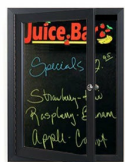 Juice Bar
Specials
Strawberry-Kiwi
Raspberry-Banana
Apple-Carrot